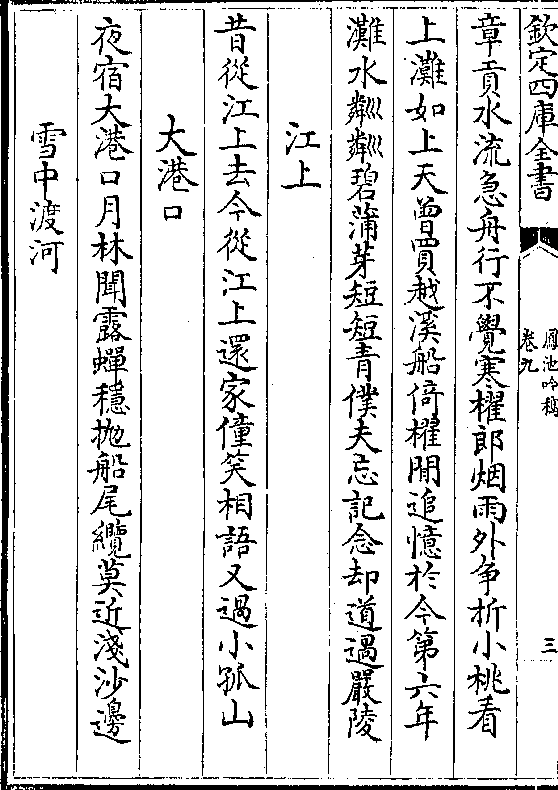 欽定四庫全書
鳳池吟稿
卷九
三
章貢水流急舟行不覺寒櫂郎烟雨外争折小桃看
上灘如上天曾買越溪船倚櫂閒追憶於今第六年
灘水粼粼碧蒲芽短短青僕夫忘記念却道過嚴陵
江上
昔從江上去今從江上還家僮笑相語又過小孤山
大港口
夜宿大港口月林聞露蟬穩抛船尾纜莫近淺沙邊
雪中渡河